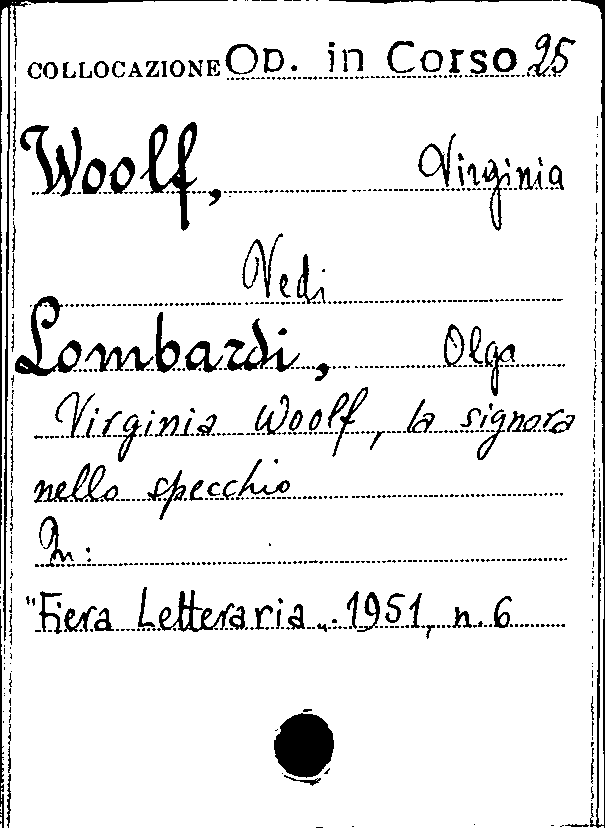 COLLOCAZIONE Op. in Corso 25
Woolf, Virginia
Vedi
Lombardi, Olga
Virginia Woolf, la signora
nello specchio
In:
"Fiera Letteraria„. 1951, n. 6